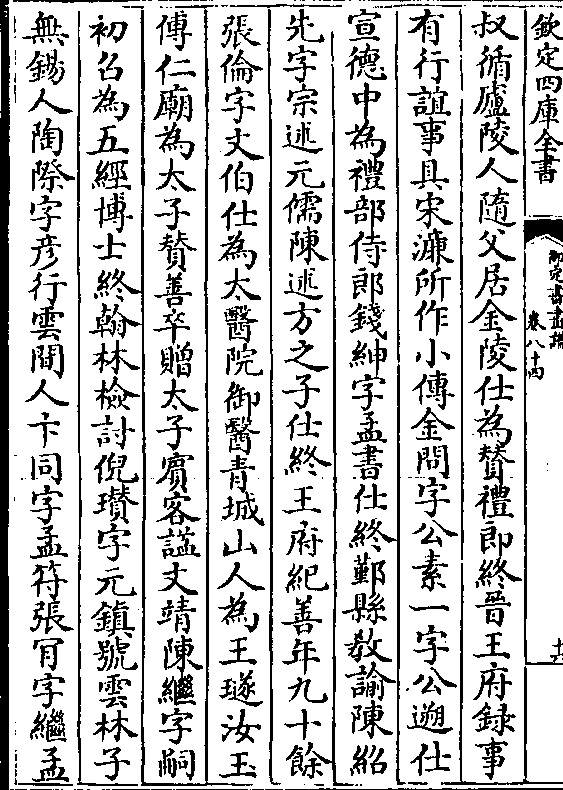 欽定四庫全書
御定書畫譜
卷八十四
十六
叔循廬陵人隨父居金陵仕為賛禮郎終晉王府録事
有行誼事具宋濂所作小傳金問字公素一字公遡仕
宣德中為禮部侍郎錢紳字孟書仕終鄞縣敎諭陳紹
先字宗述元儒陳述方之子仕終王府紀善年九十餘
張倫字文伯仕為太醫院御醫青城山人為王璲汝玉
傅仁廟為太子賛善卒贈太子賓客諡文靖陳繼字嗣
初召為五經博士終翰林檢討倪瓚字元鎮號雲林子
無錫人陶際字彦行雲間人卞同字孟符張肎字繼孟